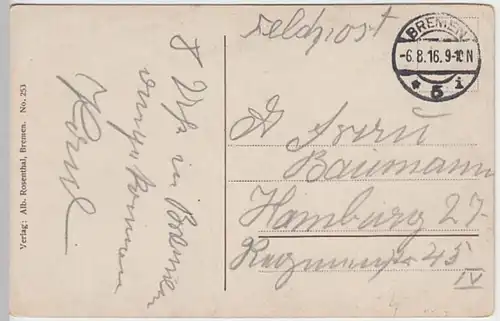 Feldpost
BREMEN
-6.8.16.9-10 N
* 5 i
8 Uhr in Bremen
angekommen
Frau
Baumann
Hamburg 27
45
IV
Verlag: Alb. Rosenthal, Bremen. No. 253